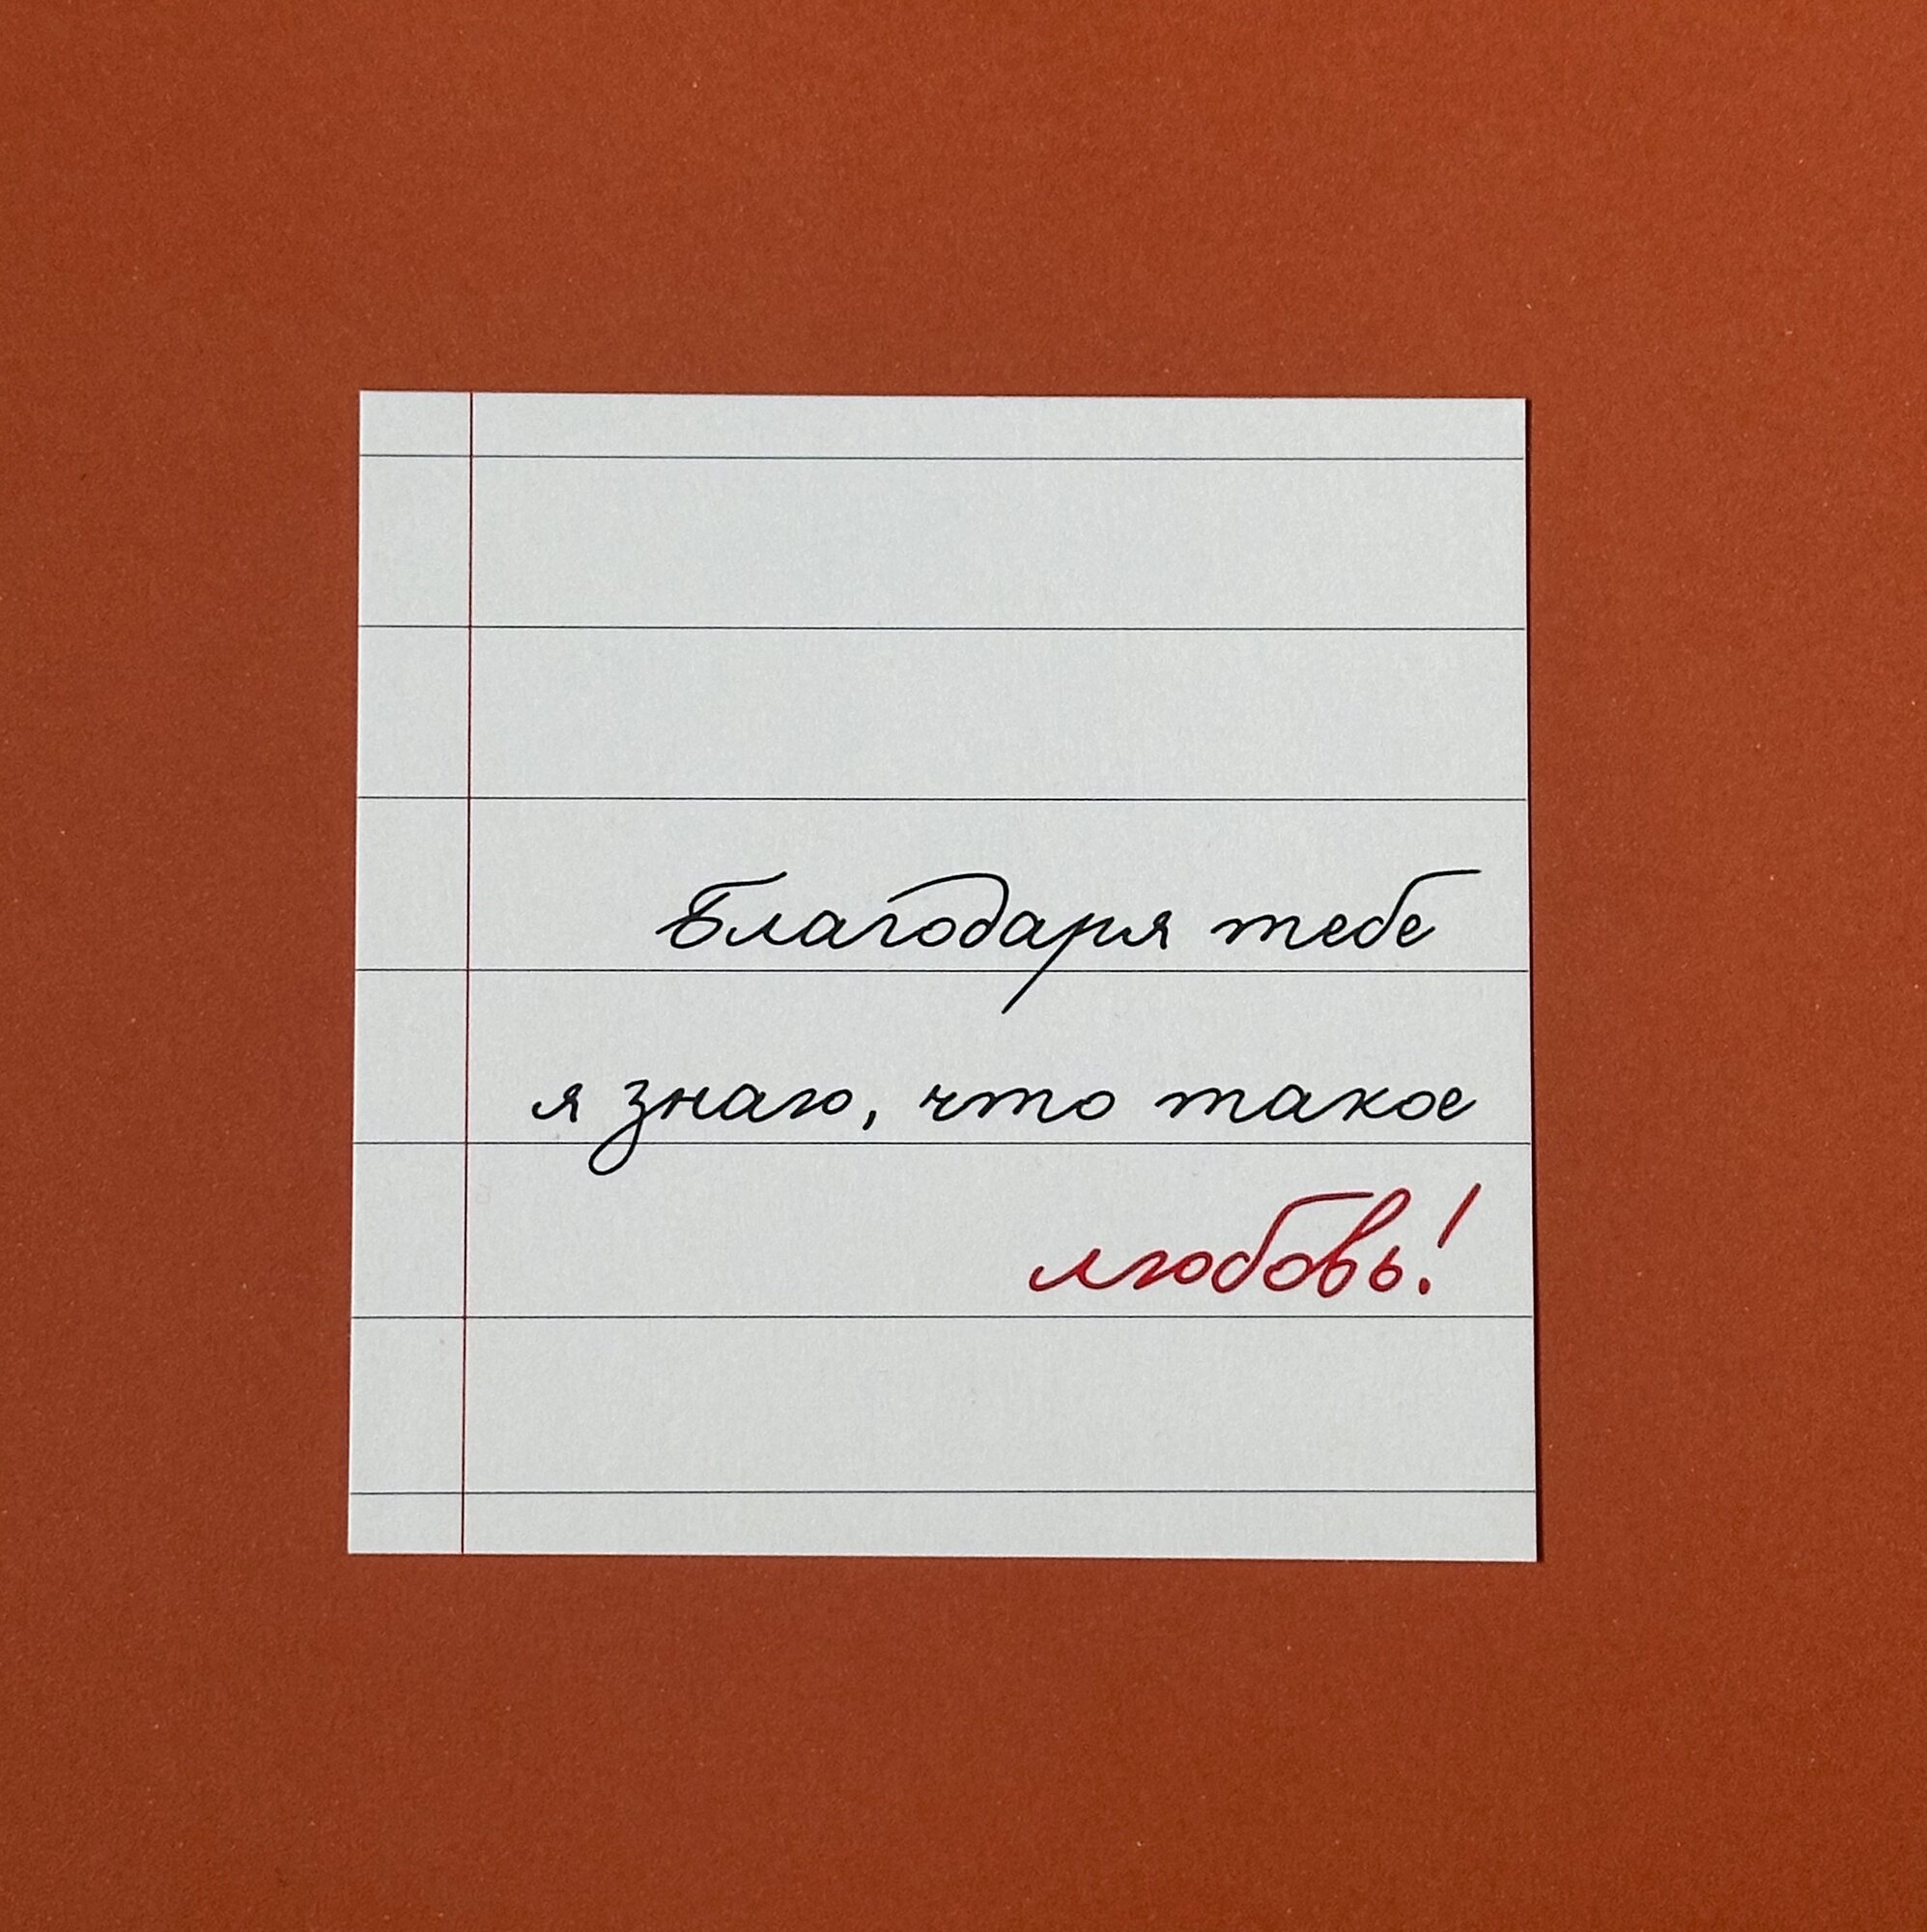 Благодаря тебе
я знаю, что такое
любовь!